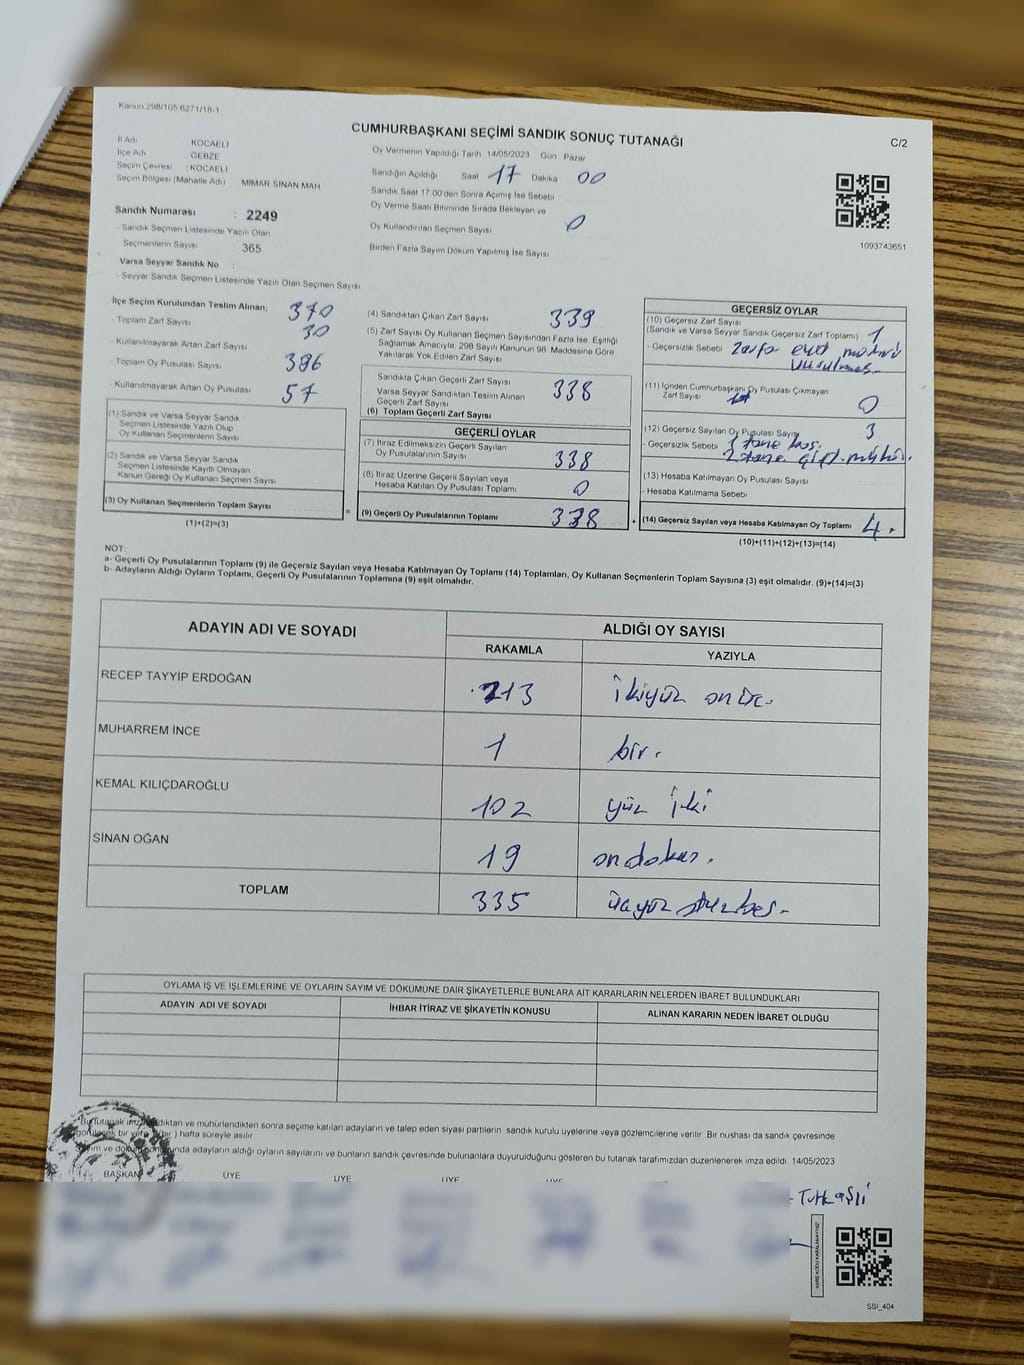 Kanun:298/105 6271/18-1
CUMHURBAŞKANI SEÇİMİ SANDIK SONUÇ TUTANAĞI
C/2
İl Adı KOCAELİ
İlçe Adı GEBZE
Seçim Çevresi : KOCAELİ
Seçim Bölgesi (Mahalle Adı) MİMAR SİNAN MAH
Oy Vermenin Yapıldığı Tarih 14/05/2023 Gün: Pazar
Sandığın Açıldığı Saat 17 Dakika 00
Sandık Saat 17:00'den Sonra Açımış İse Sebebi
Oy Verme Saati Bitiminde Sırada Bekleyen ve
Oy Kullandırılan Seçmen Sayısı 0
Birden Fazla Sayım Döküm Yapılmış İse Sayısı
1093743651
Sandık Numarası : 2249
- Sandık Seçmen Listesinde Yazılı Olan
Seçmenlerin Sayısı : 365
Varsa Seyyar Sandık No :
- Seyyar Sandık Seçmen Listesinde Yazılı Olan Seçmen Sayısı
İlçe Seçim Kurulundan Teslim Alınan; 370
- Toplam Zarf Sayısı
- Kullanılmayarak Artan Zarf Sayısı 30
- Toplam Oy Pusulası Sayısı 396
- Kullanılmayarak Artan Oy Pusulası 57
(1) Sandık ve Varsa Seyyar Sandık
Seçmen Listesinde Yazılı Olup
Oy Kullanan Seçmenlerin Sayısı
(2) Sandık ve Varsa Seyyar Sandık
Seçmen Listesinde Kayıtlı Olmayan
Kanun Gereği Oy Kullanan Seçmen Sayısı
(3) Oy Kullanan Seçmenlerin Toplam Sayısı
(1)+(2)=(3)
=
(4) Sandıktan Çıkan Zarf Sayısı 339
(5) Zarf Sayısı Oy Kullanan Seçmen Sayısından Fazla İse, Eşitliği
Sağlamak Amacıyla, 298 Sayılı Kanunun 98. Maddesine Göre
Yakılarak Yok Edilen Zarf Sayısı
Sandıkta Çıkan Geçerli Zarf Sayısı 338
Varsa Seyyar Sandıktan Teslim Alınan
Geçerli Zarf Sayısı
(6) Toplam Geçerli Zarf Sayısı
GEÇERLİ OYLAR
(7) İtiraz Edilmeksizin Geçerli Sayılan
Oy Pusulalarının Sayısı 338
(8) İtiraz Üzerine Geçerli Sayılan veya
Hesaba Katılan Oy Pusulası Toplamı 0
(9) Geçerli Oy Pusulalarının Toplamı 338
+
GEÇERSİZ OYLAR
(10) Geçersiz Zarf Sayısı
(Sandık ve Varsa Seyyar Sandık Geçersiz Zarf Toplamı) 1
- Geçersizlik Sebebi Zarfa evet mührü
vurulmuş.
(11) İçinden Cumhurbaşkanı Oy Pusulası Çıkmayan
Zarf Sayısı 0
(12) Geçersiz Sayılan Oy Pusulası Sayısı 3
- Geçersizlik Sebebi 1 tane boş.
2 tane çift mühür.
(13) Hesaba Katılmayan Oy Pusulası Sayısı
- Hesaba Katılmama Sebebi
(14) Geçersiz Sayılan veya Hesaba Katılmayan Oy Toplamı 4.
(10)+(11)+(12)+(13)=(14)
NOT:
a- Geçerli Oy Pusulalarının Toplamı (9) ile Geçersiz Sayılan veya Hesaba Katılmayan Oy Toplamı (14) Toplamları, Oy Kullanan Seçmenlerin Toplam Sayısına (3) eşit olmalıdır. (9)+(14)=(3)
b- Adayların Aldığı Oyların Toplamı, Geçerli Oy Pusulalarının Toplamına (9) eşit olmalıdır.
ADAYIN ADI VE SOYADI
ALDIĞI OY SAYISI
RAKAMLA YAZIYLA
RECEP TAYYİP ERDOĞAN 213 ikiyüz onüç.
MUHARREM İNCE 1 bir.
KEMAL KILIÇDAROĞLU 102 yüz iki
SİNAN OĞAN 19 ondokuz.
TOPLAM 335 üçyüz otuzbeş.
OYLAMA İŞ VE İŞLEMLERİNE VE OYLARIN SAYIM VE DÖKÜMÜNE DAİR ŞİKAYETLERLE BUNLARA AİT KARARLARIN NELERDEN İBARET BULUNDUKLARI
ADAYIN ADI VE SOYADI İHBAR İTİRAZ VE ŞİKAYETİN KONUSU ALINAN KARARIN NEDEN İBARET OLDUĞU
Bu tutanak ve mühürlendikten sonra seçime katılan adayların ve talep eden siyasi partilerin sandık kurulu üyelerine veya gözlemcilerine verilir. Bir nüshası da sandık çevresinde
bir hafta süreyle asılır
adayların aldığı oyların sayılarını ve bunların sandık çevresinde bulunanlara duyurulduğunu gösteren bu tutanak tarafımızdan düzenlenerek imza edildi 14/05/2023
BAŞKAN ÜYE ÜYE ÜYE ÜYE
SSI_404